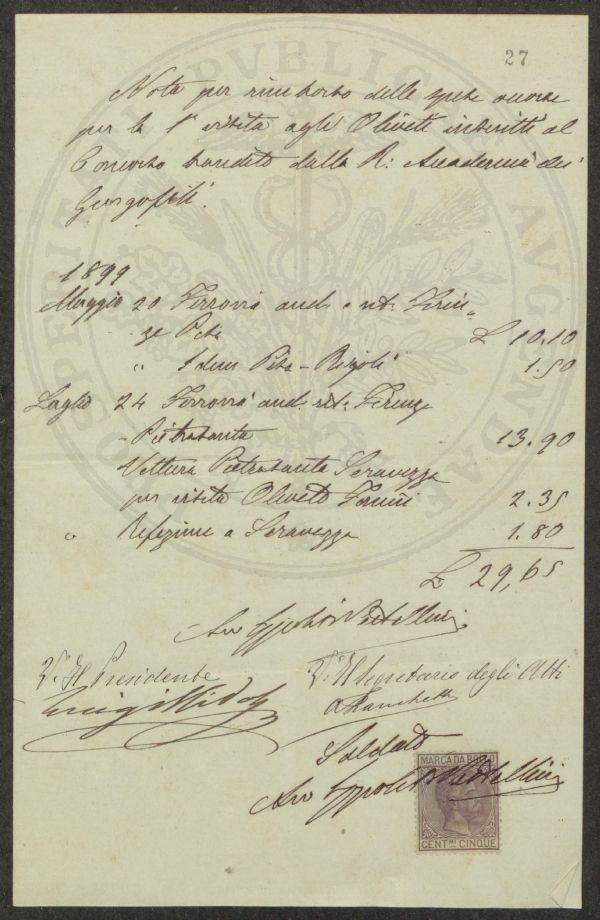 27
Nota per rimborso delle spese occorse
per la 1ª visita agli Oliveti inscritti al
Concorso bandito dalla R: Accademia dei
Georgofili.
1899
Maggio 20 Ferrovia and. e rit. Firen=
ze Pisa £ 10.10
" Idem Pisa - Rigoli 1.50
Luglio 24 Ferrovia and. rit. Firenze
- Pietrasanta 13.90
Vettura Pietrasanta Seravezza
per visita Oliveto 2.35
" Refezione a Seravezza 1.80
£ 29,65
Avv Ippolito Pestellini
V° Il Presidente
Luigi Ridolfi
V° Il Segretario degli Atti
Saldato
Avv Ippolito Pestellini
MARCA DA BOLLO
CENT.MI CINQUE
PROSPERITATI PUBLICAE AUGENDAE